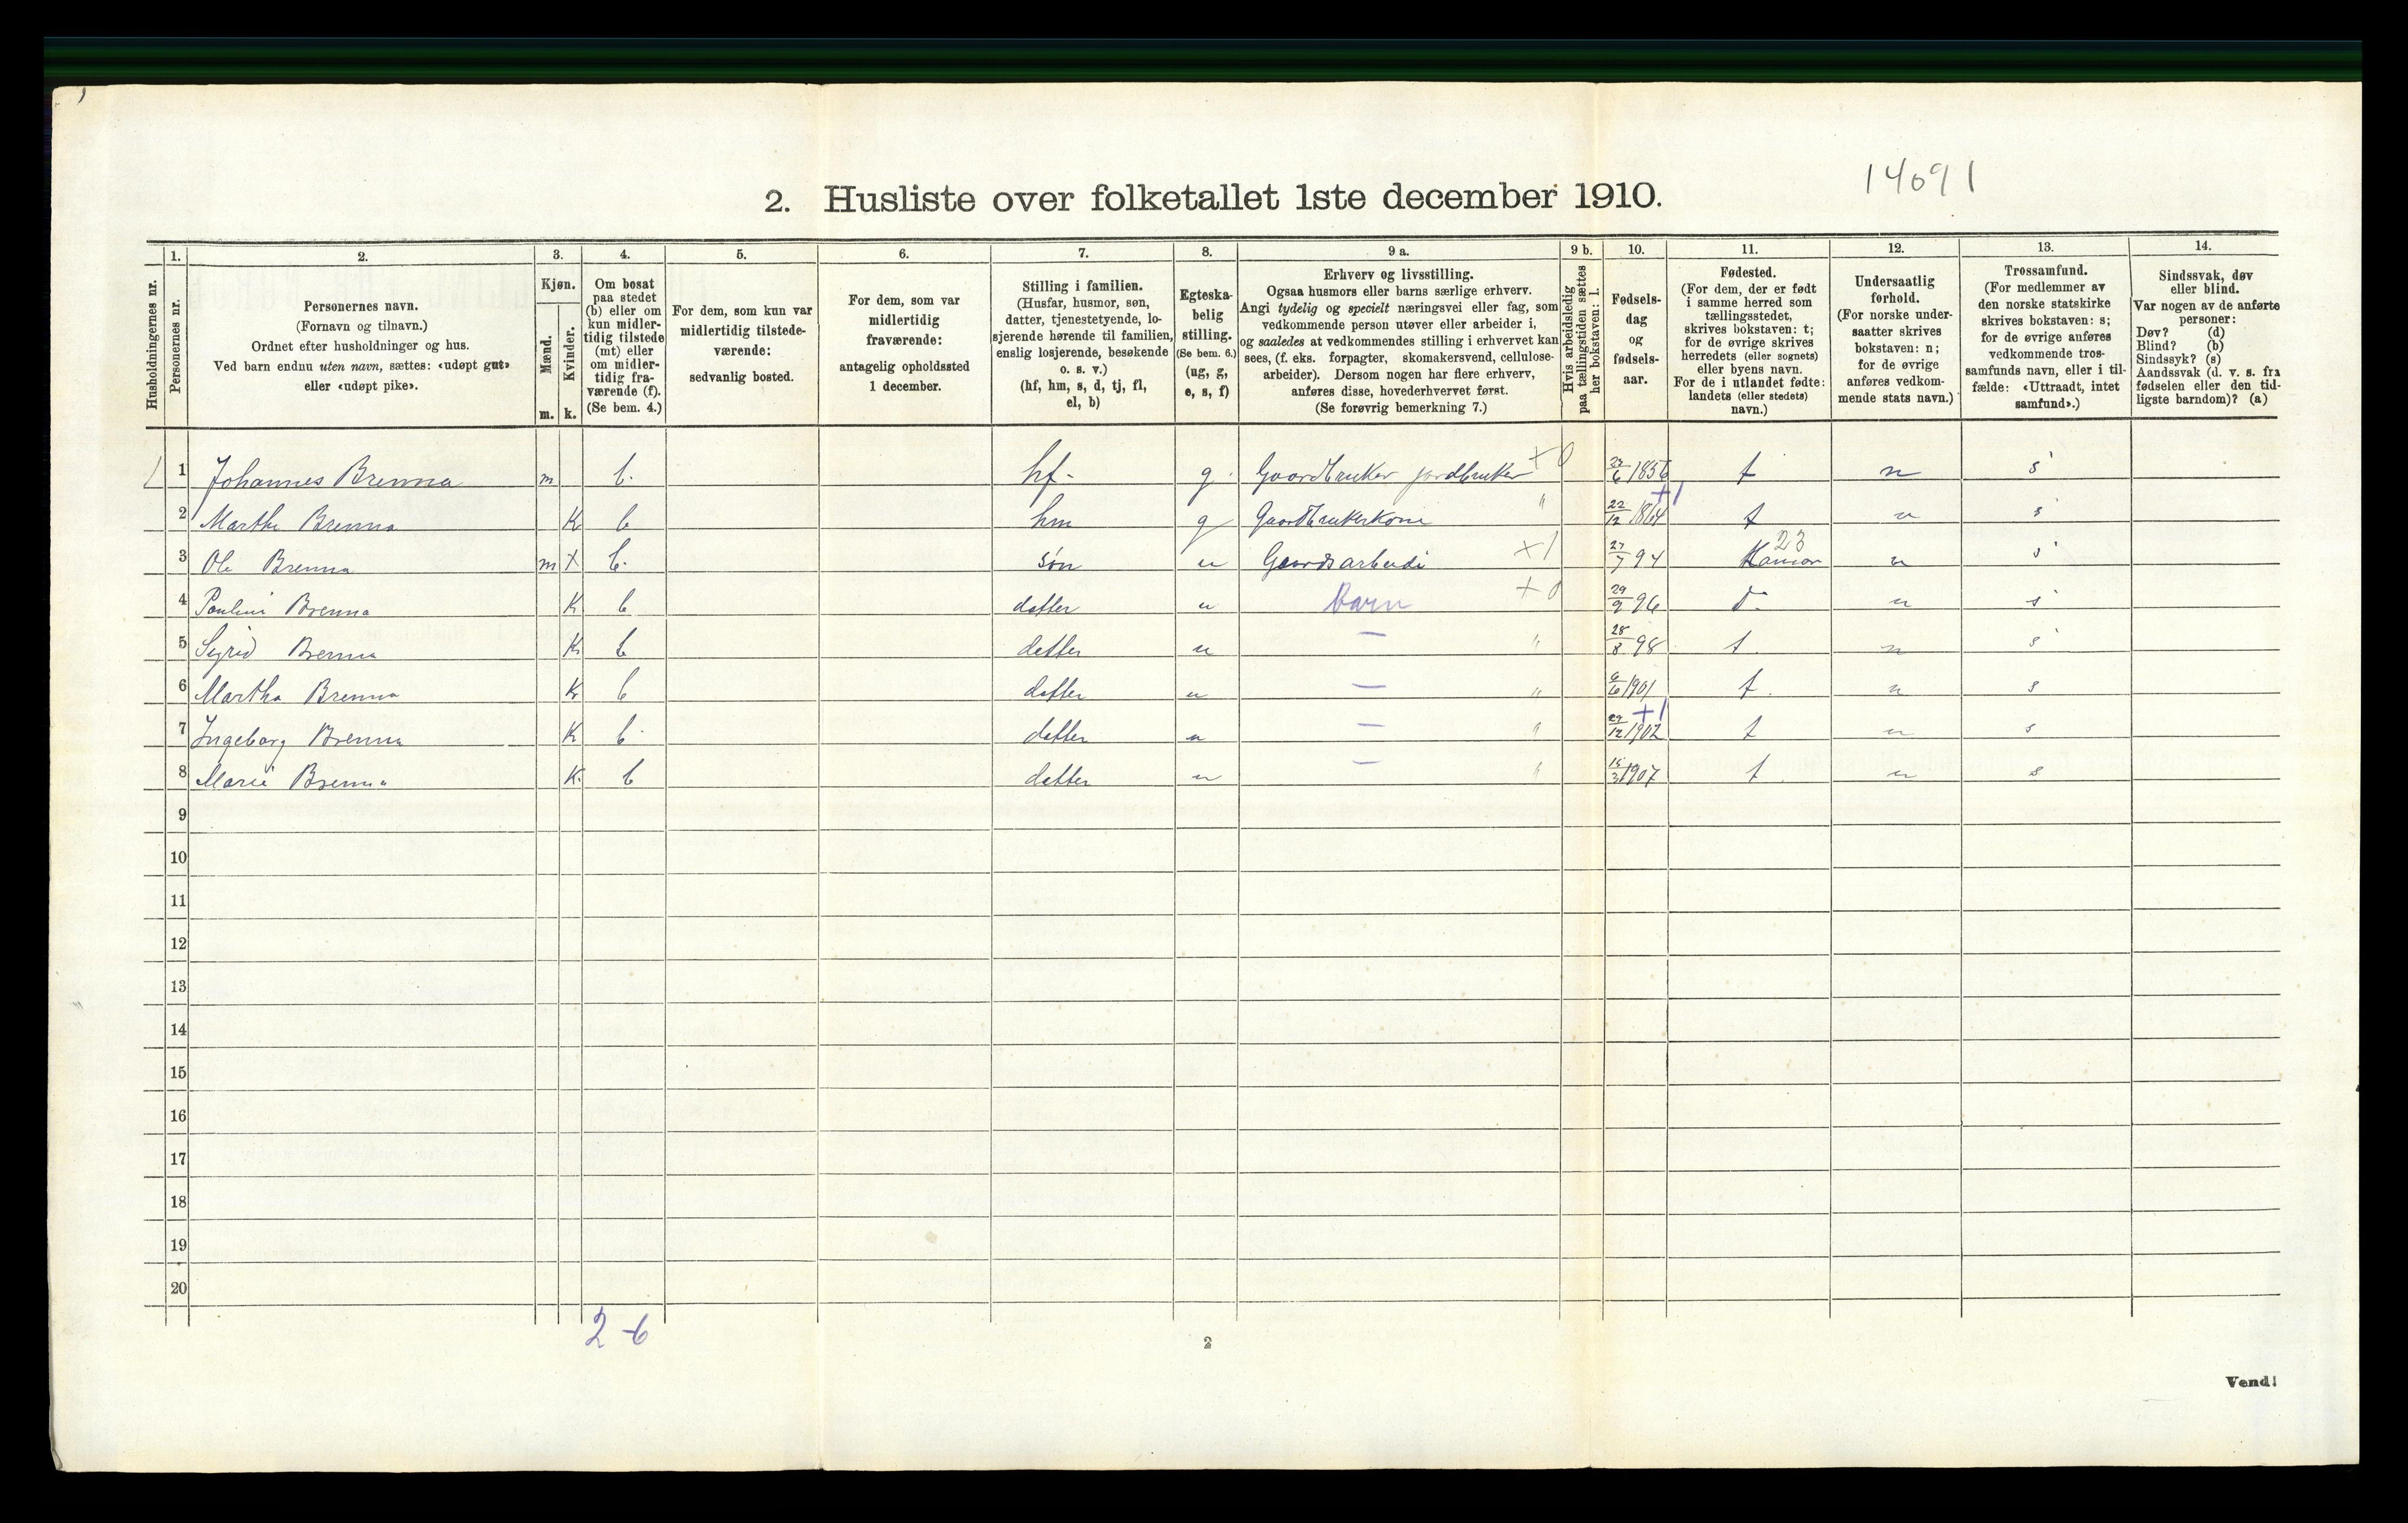 14091
2. Husliste over folketallet 1ste december 1910.
Husholdningernes nr.
1. Personernes nr.
2. Personernes navn.
(Fornavn og tilnavn.)
Ordnet efter husholdninger og hus.
Ved barn endnu uten navn, sættes: «udøpt gut»
eller «udøpt pike».
3. Kjøn.
Mænd. m.
Kvinder. k.
4. Om bosat
paa stedet
(b) eller om
kun midler-
tidig tilstede
(mt) eller
om midler-
tidig fra-
værende (f).
(Se bem. 4.)
5. For dem, som kun var
midlertidig tilstede-
værende:
sedvanlig bosted.
6. For dem, som var
midlertidig
fraværende:
antagelig opholdssted
1 december.
7. Stilling i familien.
(Husfar, husmor, søn,
datter, tjenestetyende, lo-
sjerende hørende til familien,
enslig losjerende, besøkende
o. s. v.)
(hf, hm, s, d, tj, fl,
el, b)
8. Egteska-
belig
stilling.
(Se bem. 6.)
(ug, g,
e, s, f)
9 a. Erhverv og livsstilling.
Ogsaa husmors eller barns særlige erhverv.
Angi tydelig og specielt næringsvei eller fag, som
vedkommende person utøver eller arbeider i,
og saaledes at vedkommendes stilling i erhvervet kan
sees, (f. eks. forpagter, skomakersvend, cellulose-
arbeider). Dersom nogen har flere erhverv,
anføres disse, hovederhvervet først.
(Se forøvrig bemerkning 7.)
9 b. Hvis arbeidsledig
paa tællingstiden sættes
her bokstaven: l.
10. Fødsels-
dag
og
fødsels-
aar.
11. Fødested.
(For dem, der er født
i samme herred som
tællingsstedet,
skrives bokstaven: t;
for de øvrige skrives
herredets (eller sognets)
eller byens navn.
For de i utlandet fødte:
landets (eller stedets)
navn.)
12. Undersaatlig
forhold.
(For norske under-
saatter skrives
bokstaven: n;
for de øvrige
anføres vedkom-
mende stats navn.)
13. Trossamfund.
(For medlemmer av
den norske statskirke
skrives bokstaven: s;
for de øvrige anføres
vedkommende tros-
samfunds navn, eller i til-
fælde: «Uttraadt, intet
samfund».)
14. Sindssvak, døv
eller blind.
Var nogen av de anførte
personer:
Døv? (d)
Blind? (b)
Sindssyk? (s)
Aandssvak (d. v. s. fra
fødselen eller den tid-
ligste barndom)? (a)
1 1 Johannes Brenna m b. hf- g. Gaardbruker jordbruker +0 23/6 1856 t n s
2 Marthe Brenna K b hm g Gaardbrukerkone " 22/12 1864 +1 t n s
3 Ole Brenna m X b. søn u Gaardsarbeide +1 27/7 94 23 n s
4 Pauline Brenna K b datter u Barn +0 29/9 96 n s
5 Sigrid Brenna K b datter u — " 28/8 98 t. n s
6 Martha Brenna K b datter u — " 6/6 1901 t. n s
7 Ingeborg Brenna K b datter u — " 29/12 1902 +1 t n s
8 Marie Brenna K. b datter u — " 15/3 1907 t n s
9
10
11
12
13
14
15
16
17
18
19
20
2-6
2
Vend!